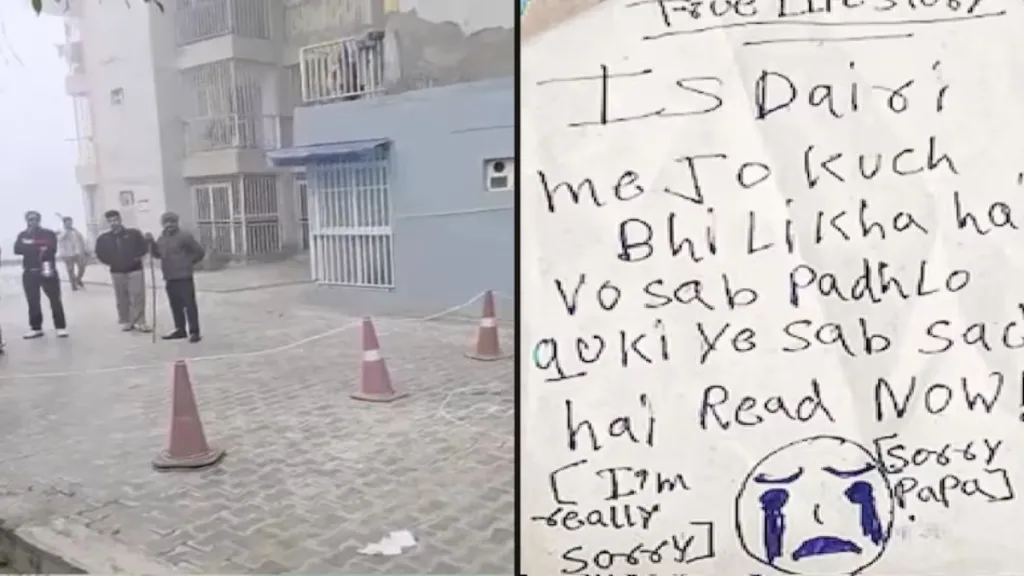 True Life Story
IS Dairi
me Jo Kuch
Bhi Likha ha
Vo sab Padh Lo
quki Ye Sab sac
hai Read NOW!
[I'm
really
sorry]
[Sorry
Papa]